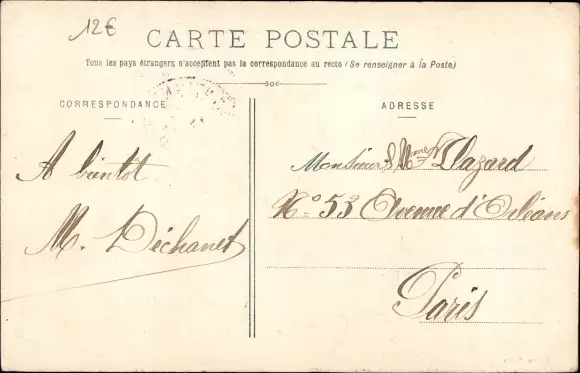 12€
CARTE POSTALE
Tous les pays étrangers n'acceptent pas la correspondance au recto (Se renseigner à la Poste)
CORRESPONDANCE
ADRESSE
A bientôt
M. Déchanet
Monsieur & Mme Lazard
N° 53 Avenue d'Orléans
Paris